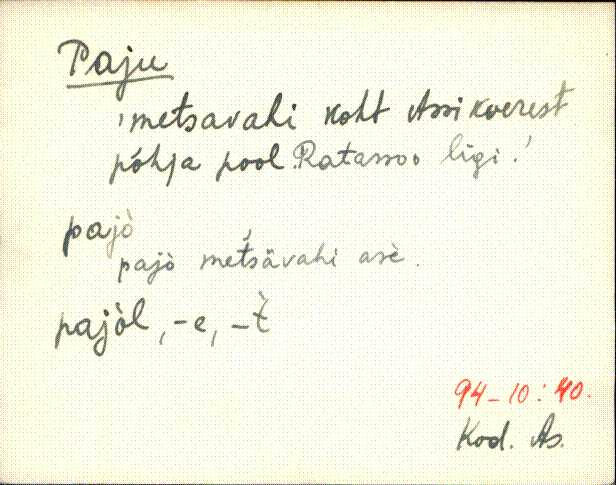 Paju
'metsavahi koht Assikverest
põhja pool Ratassoo ligi.'
pajò
pajò met́sävahi asè.
pajòl, -e, -t̀
94-10:40.
Kod. As.